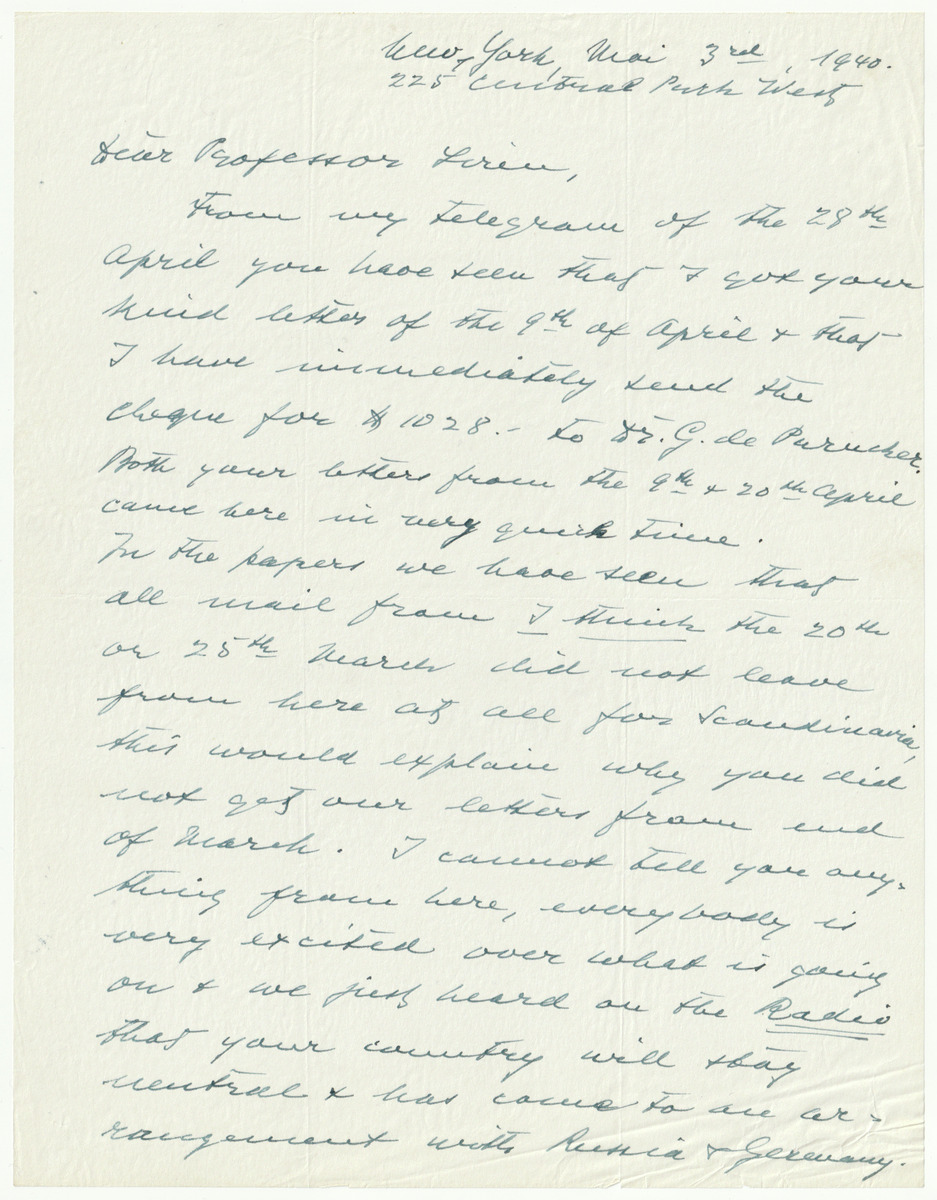 New York, Mai 3rd, 1940.
225 Central Park West
Dear Professor Siren,
From my telegram of the 28th
April you have seen that I got your
kind letter of the 9th of April & that
I have immediately send the
cheque for $ 1028.- to Dr. G. de Purucker.
Both your letters from the 9th & 20th April
came here in very quick time.
In the papers we have seen that
all mail from I think the 20th
or 25th March did not leave
from here at all for Scandinavia,
this would explain why you did
not get our letters from end
of March. I cannot tell you any-
thing from here, everybody is
very excited over what is going
on & we just heard on the Radio
that your country will stay
neutral & has come to an ar-
rangement with Russia & Germany.